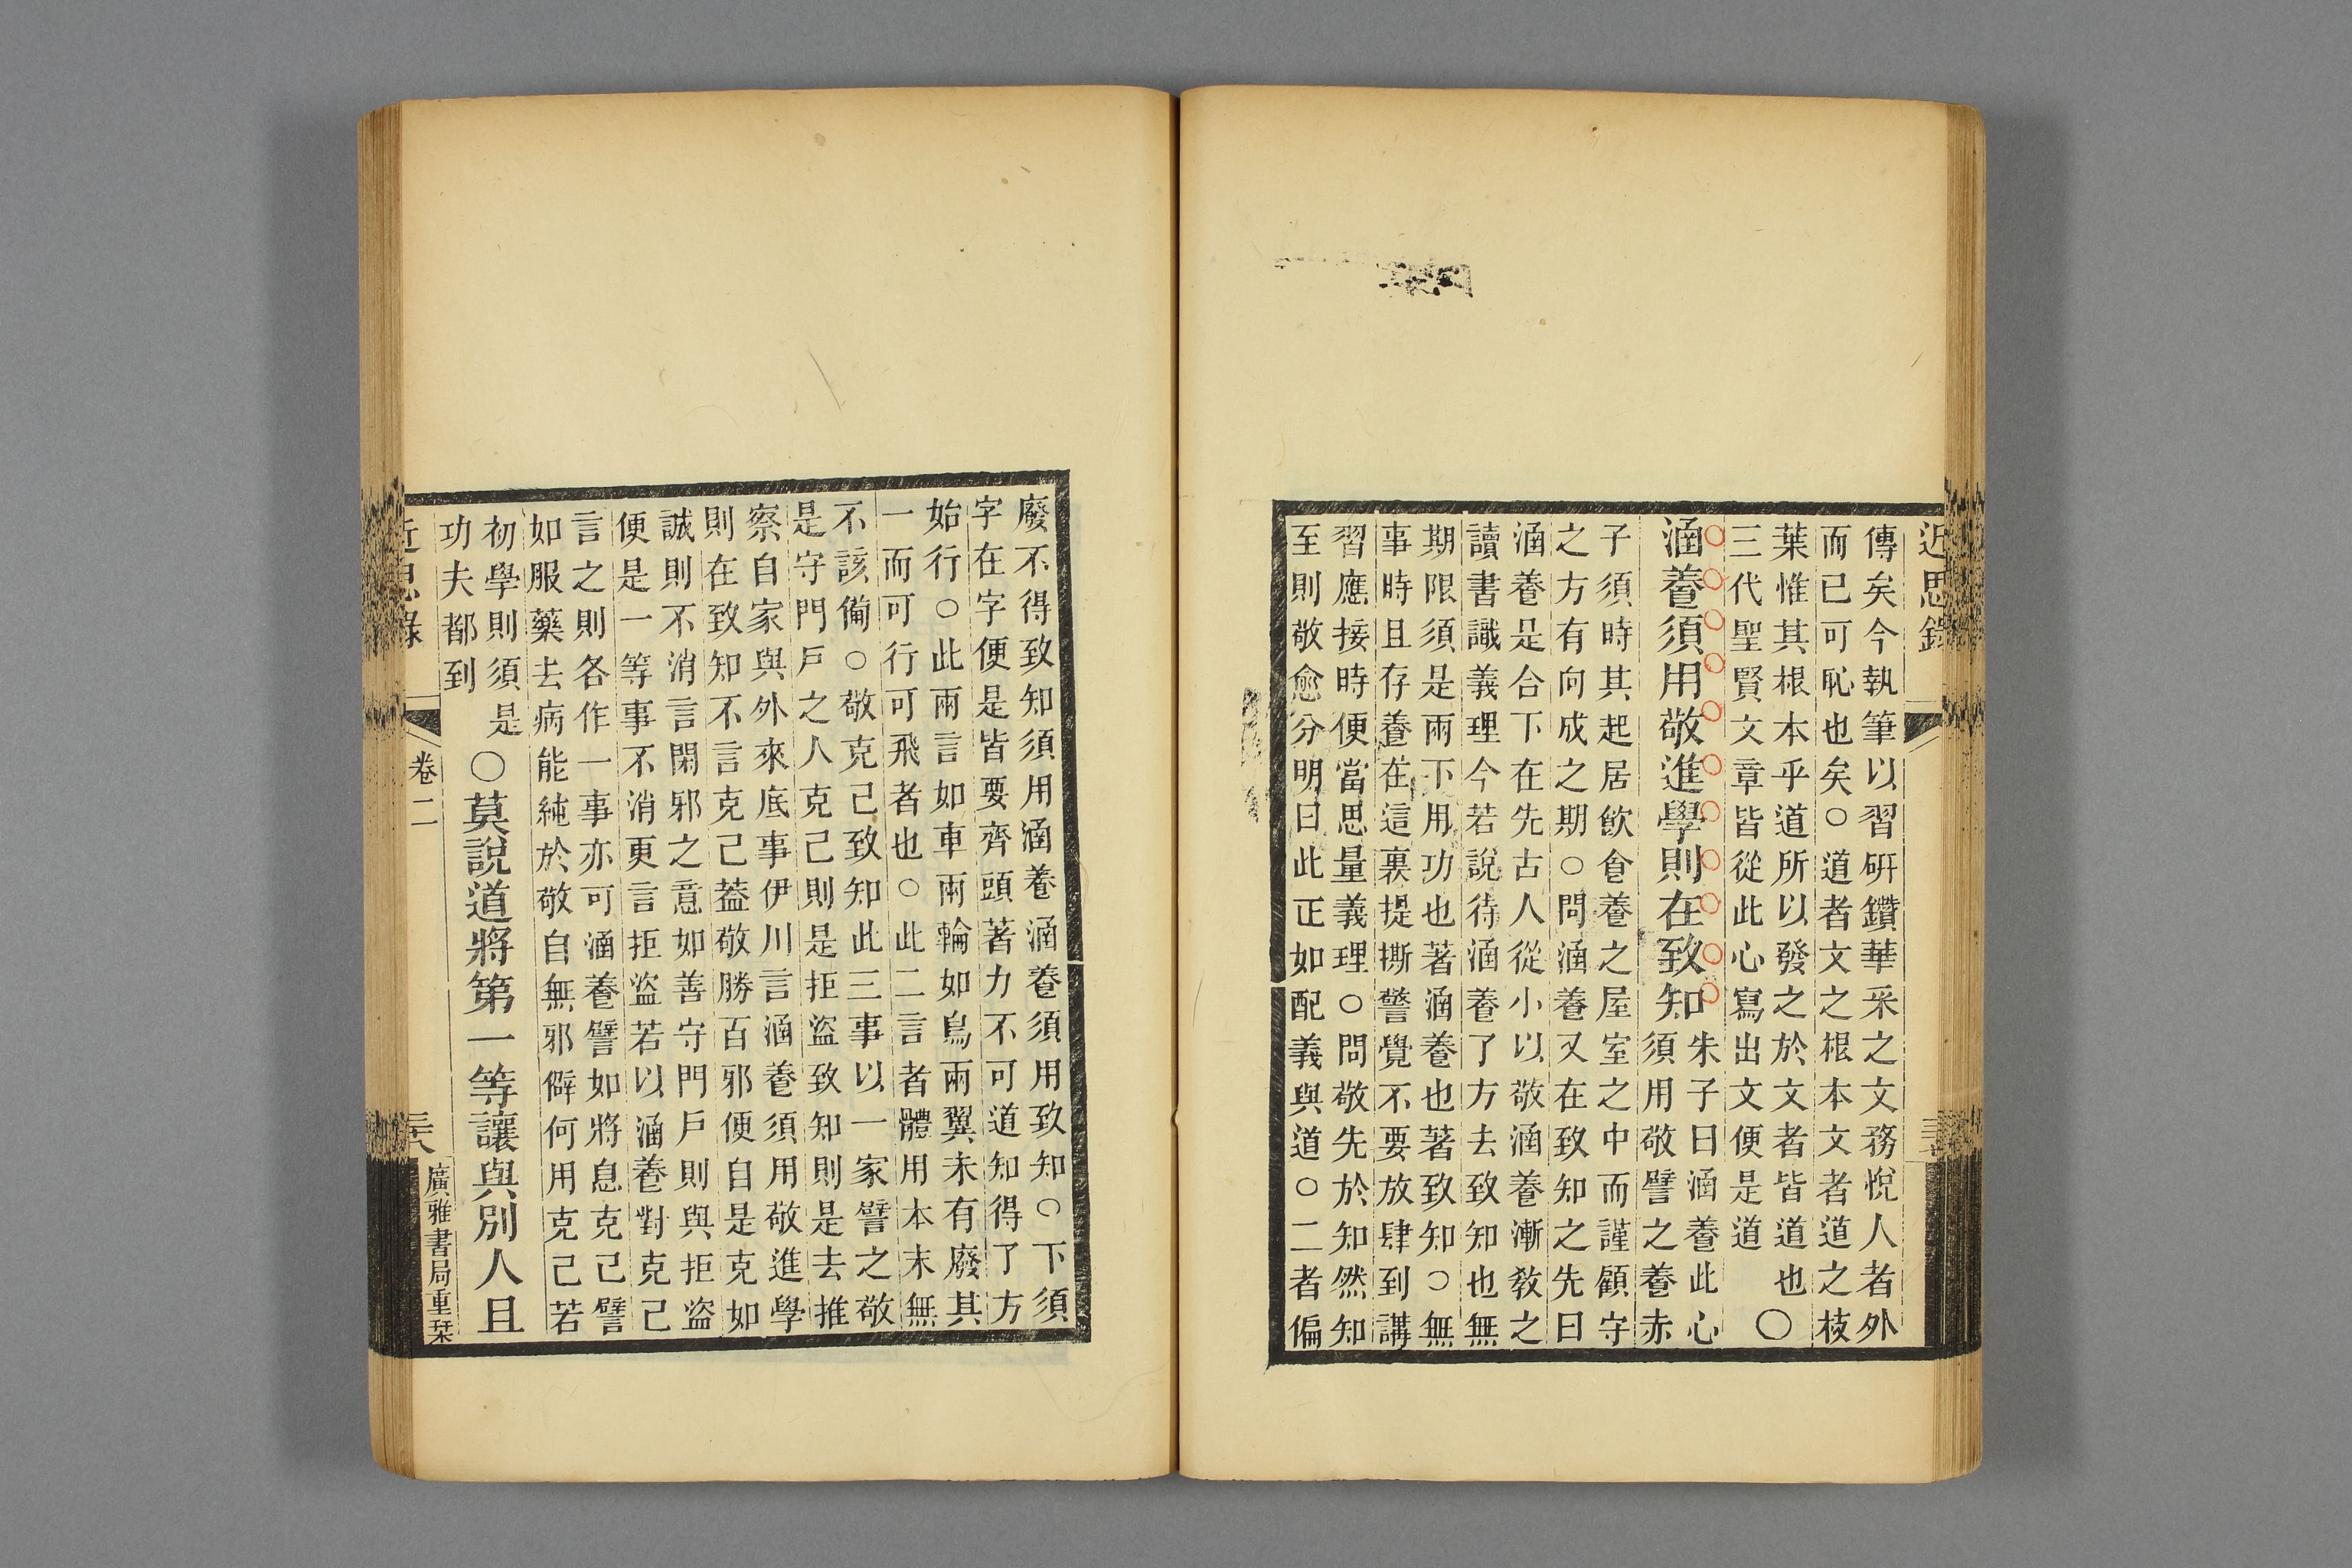 近思錄
傳矣今執筆以習硏鑽華采之文務悅人者外
而已可恥也矣○道者文之根本文者道之枝
葉惟其根本乎道所以發之於文者皆道也
三代聖賢文章皆從此心寫出文便是道
○
涵養須用敬進學則在致知
朱子曰涵養此心
須用敬譬之養赤
子須時其起居飮食養之屋室之中而謹顧守
之方有向成之期○問涵養又在致知之先曰
涵養是合下在先古人從小以敬涵養漸敎之
讀書識義理今若說待涵養了方去致知也無
期限須是兩下用功也著涵養也著致知○無
事時且存養在這裏提撕警覺不要放肆到講
習應接時便當思量義理○問敬先於知然知
至則敬愈分明曰此正如配義與道○二者偏
廢不得致知須用涵養涵養須用致知○下須
字在字便是皆要齊頭著力不可道知得了方
始行○此兩言如車兩輪如鳥兩翼未有廢其
一而可行可飛者也○此二言者體用本末無
不該備○敬克己致知此三事以一家譬之敬
是守門戶之人克己則是拒盜致知則是去推
察自家與外來底事伊川言涵養須用敬進學
則在致知不言克己蓋敬勝百邪便自是克如
誠則不消言閑邪之意如善守門戶則與拒盜
便是一等事不消更言拒盜若以涵養對克己
言之則各作一事亦可涵養譬如將息克己譬
如服藥去病能純於敬自無邪僻何用克己若
初學則須是
功夫都到
○莫說道將第一等讓與別人且
近思錄
卷二
三十八
廣雅書局重栞